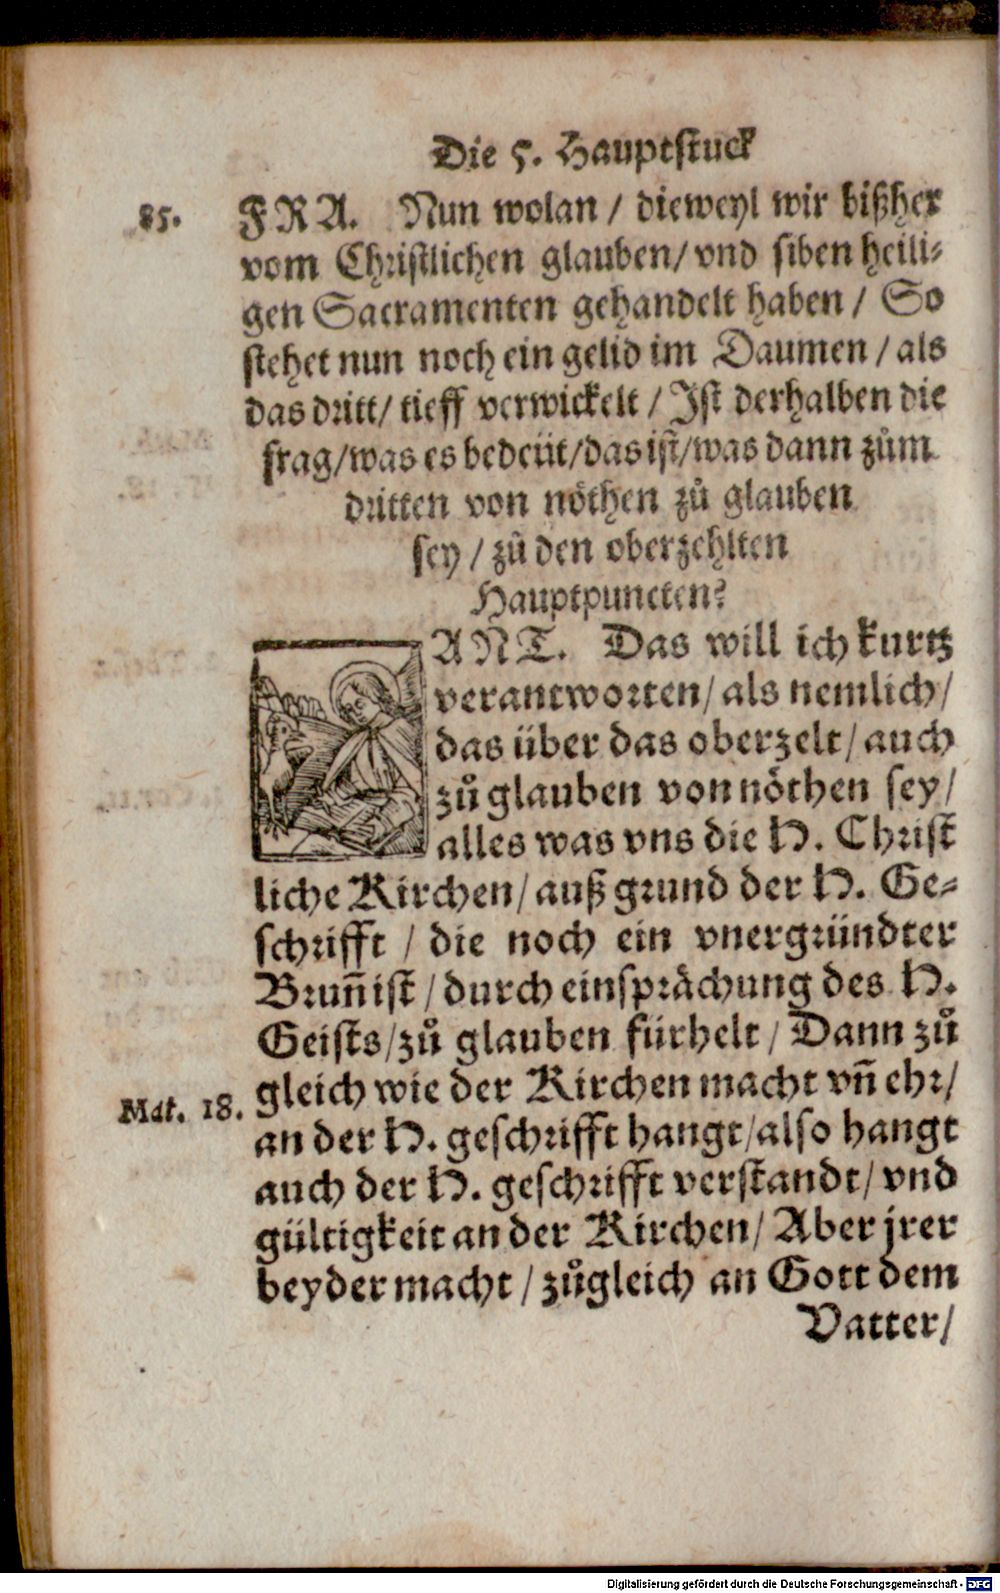 Die 5. Hauptstuck
85.
FRA. Nun wolan / dieweyl wir bißher
vom Christlichen glauben/ vnd siben heili-
gen Sacramenten gehandelt haben / So
stehet nun noch ein gelid im Daumen / als
das dritt/ tieff verwickelt / Ist derhalben die
frag/was es bedeüt/das ist/was dann zům
dritten von nöthen zů glauben
sey / zů den oberzehlten
Hauptpuncten?
ANT. Das will ich kurtz
verantworten/ als nemlich/
das über das oberzelt/ auch
zů glauben von nöthen sey/
alles was vns die H. Christ
liche Kirchen/ auß grund der H. Ge-
schrifft / die noch ein vnergründter
Brun̄ ist / durch einsprächung des H.
Geists/zů glauben fürhelt / Dann zů
Mat. 18.
gleich wie der Kirchen macht vn̄ ehr/
an der H. geschrifft hangt/also hangt
auch der H. geschrifft verstandt/ vnd
gültigkeit an der Kirchen/ Aber jrer
beyder macht / zůgleich an Gott dem
Vatter/
Digitalisierung gefördert durch die Deutsche Forschungsgemeinschaft - DFG